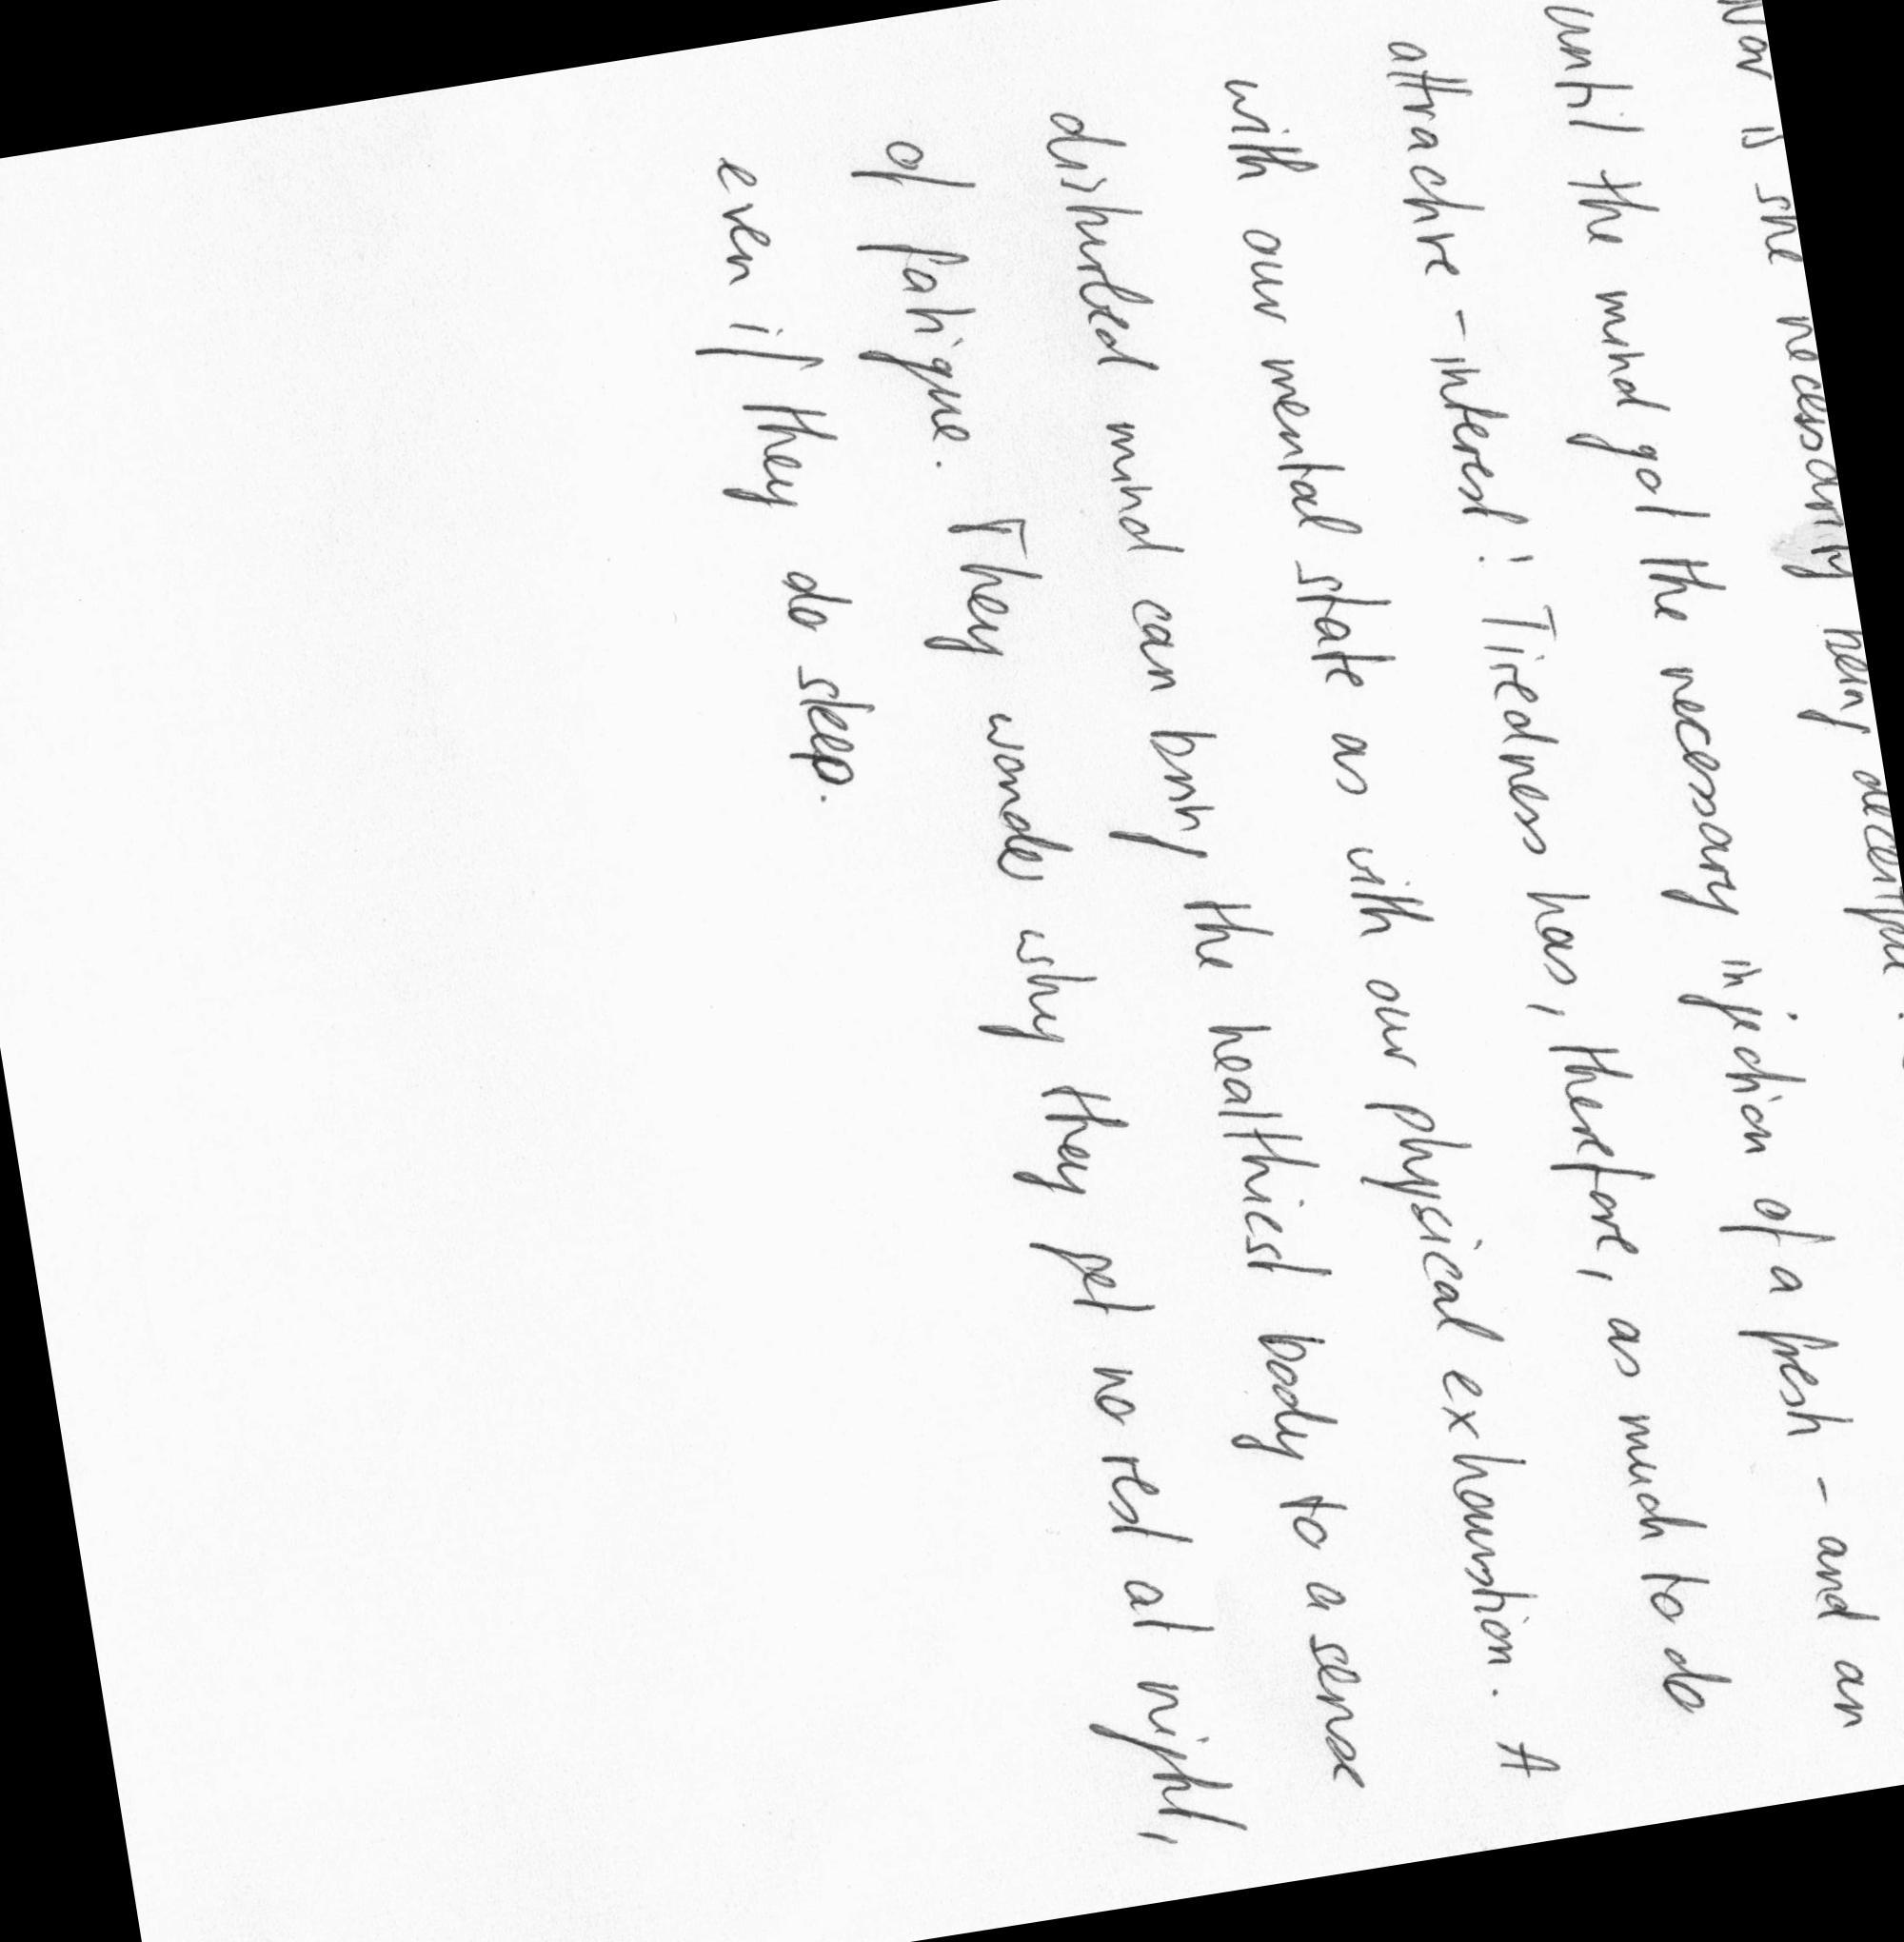 Nor is she necessarily being deceitful.
until the mind got the necessary injection of a fresh - and an
attractive - interest! Tiredness has, therefore, as much to do
with our mental state as with our physical exhaustion. A
disturbed mind can bring the healthiest body to a sense
of fatigue. They wonder why they get no rest at night,
even if they do sleep.